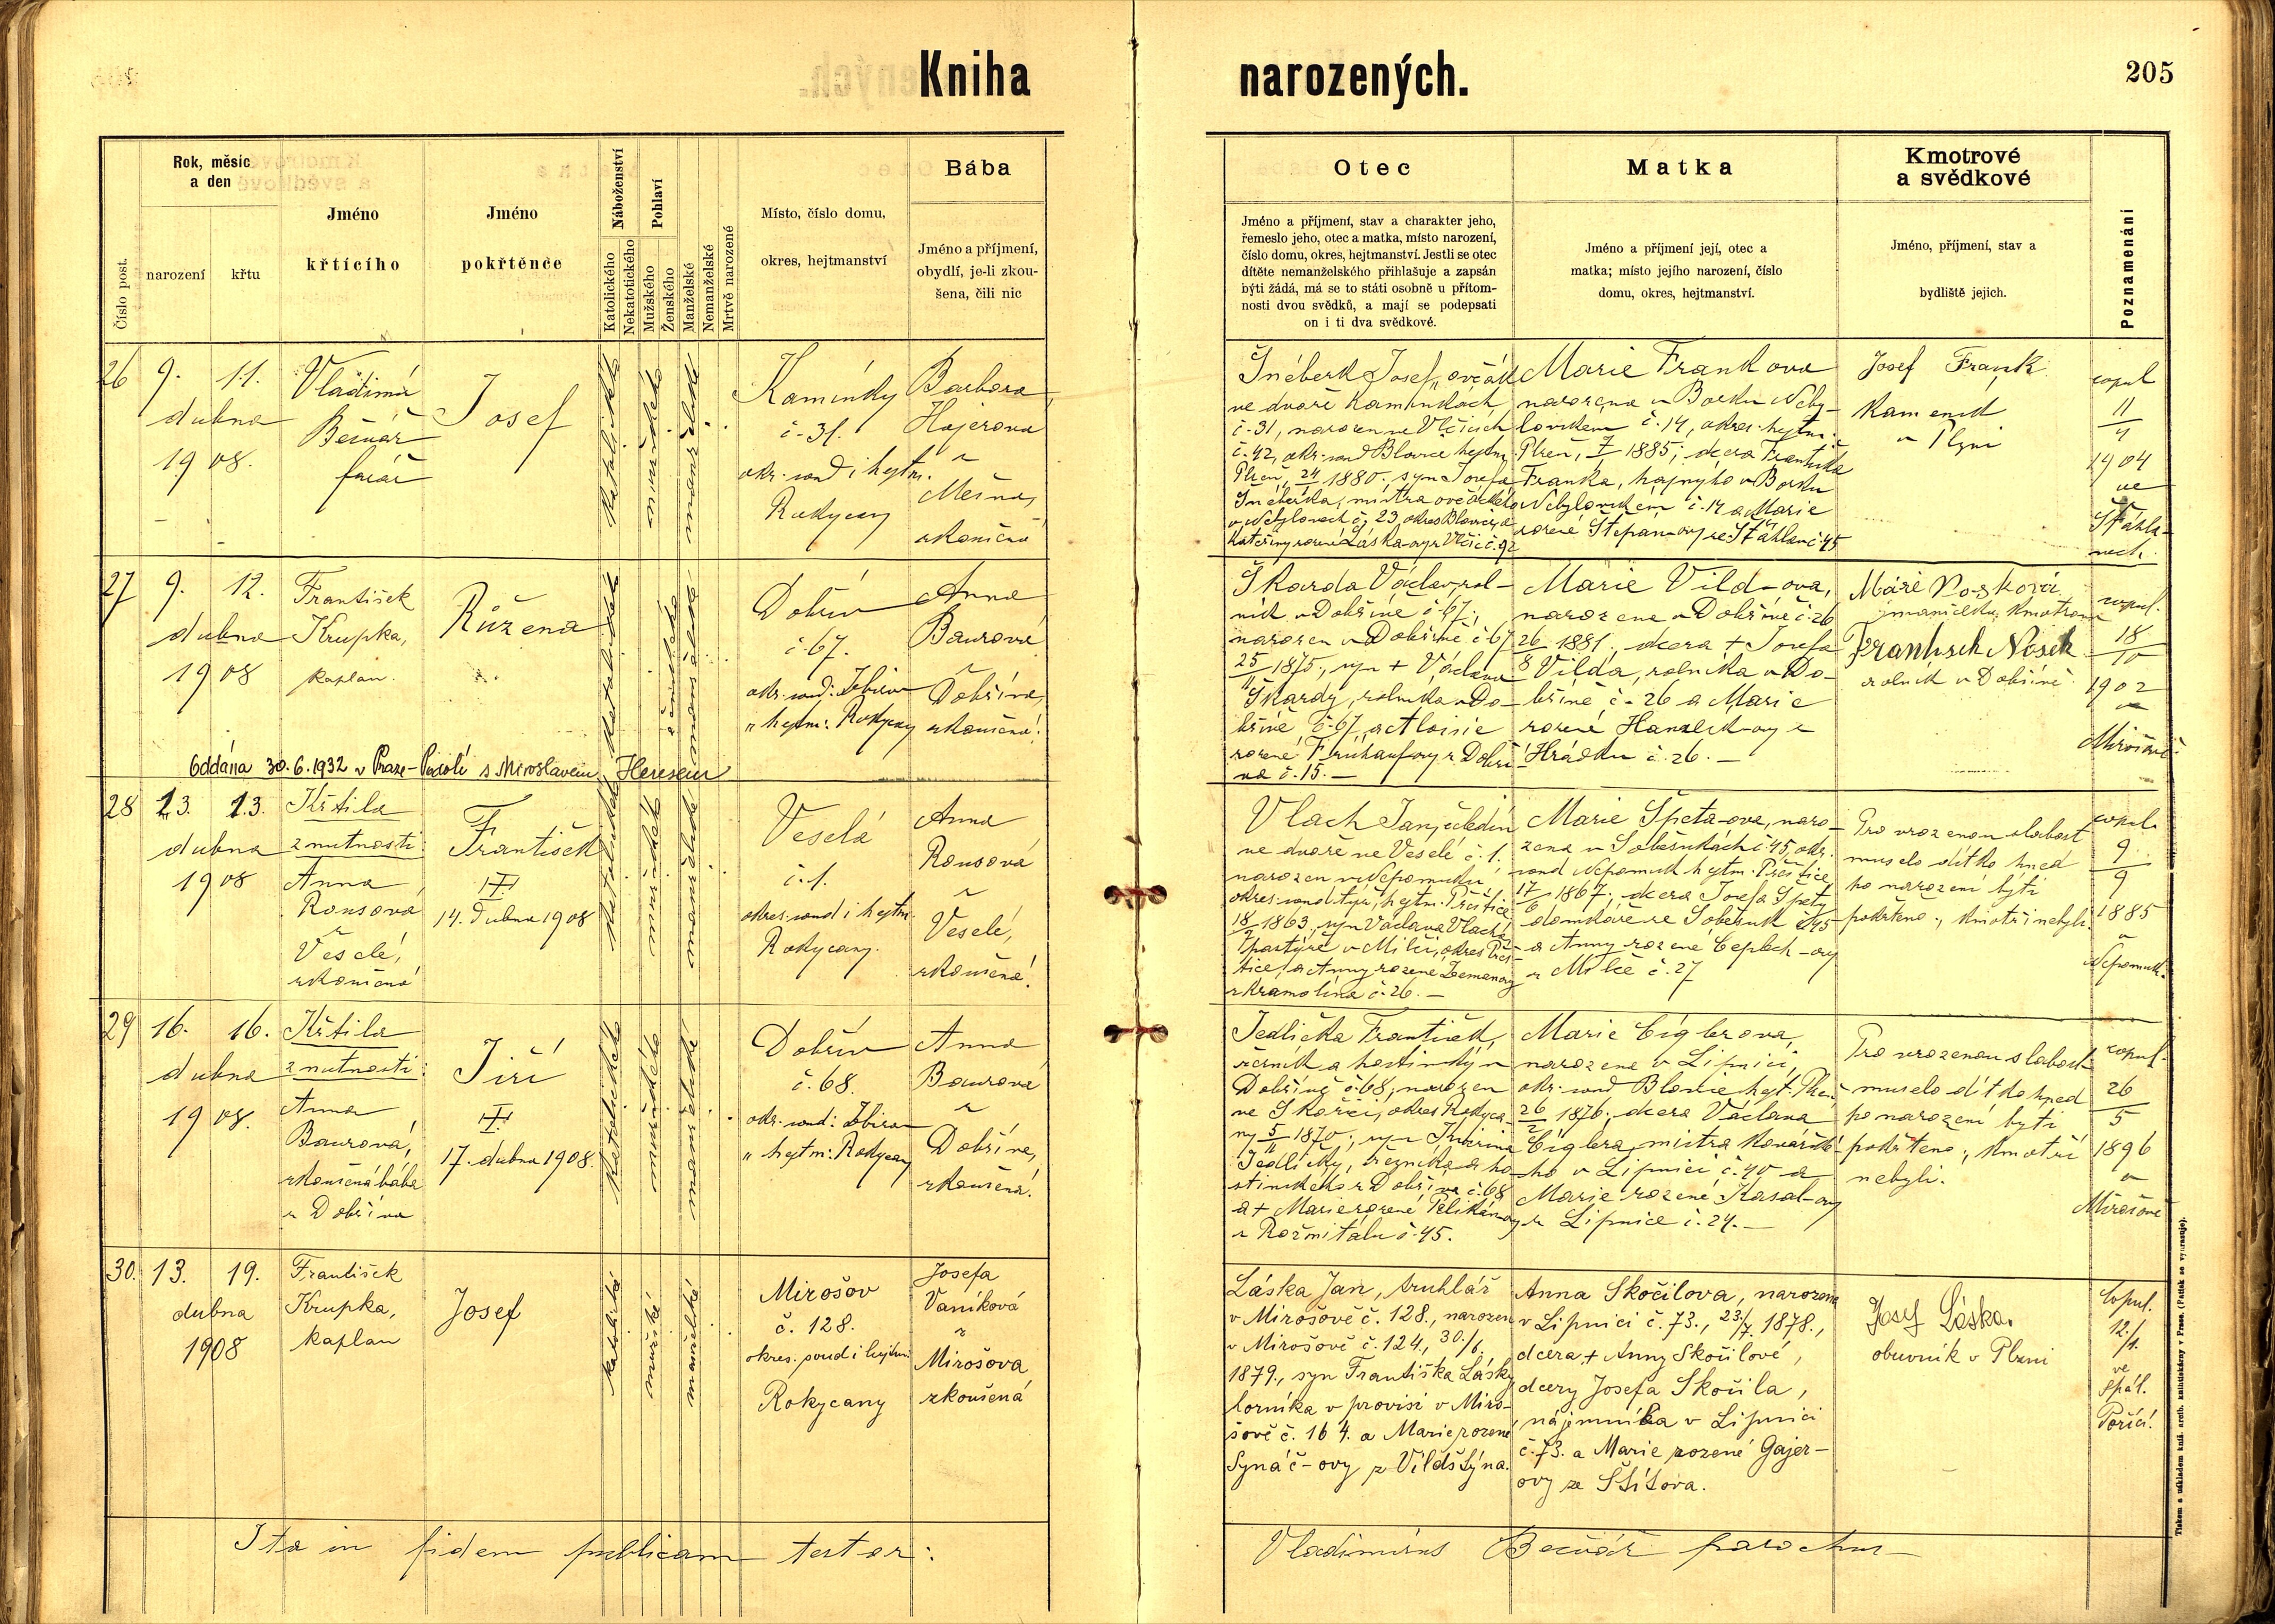 Kniha narozených.
205
Číslo post.
Rok, měsíc
a den
narození
křtu
Jméno
křtícího
Jméno
pokřtěnče
Náboženství
Katolického
Nekatolického
Pohlaví
Mužského
Ženského
Manželské
Nemanželské
Mrtvě narozené
Místo, číslo domu,
okres, hejtmanství
Bába
Jméno a příjmení,
obydlí, je-li zkou-
šena, čili nic
Otec
Jméno a příjmení, stav a charakter jeho,
řemeslo jeho, otec a matka, místo narození,
číslo domu, okres, hejtmanství. Jestli se otec
dítěte nemanželského přihlašuje a zapsán
býti žádá, má se to státi osobně u přítom-
nosti dvou svědků, a mají se podepsati
on i ti dva svědkové.
Matka
Jméno a příjmení její, otec a
matka; místo jejího narození, číslo
domu, okres, hejtmanství.
Kmotrové
a svědkové
Jméno, příjmení, stav a
bydliště jejich.
Poznamenání
26
9. 11.
dubna
1908.
Vladimír
Bečvář
farář
Josef
katolického
mužského
manželské
Kamínky
č. 31.
okr. soud i hejtm.
Rokycany
Barbora
Hajerova
z
Mešna,
zkoušená
Šnéberk Josef, ovčák
ve dvoře Kamínkách
č. 31, narozen ve Vlčicích
č. 42, okr. soud Blovice hejtm.
Plzeň, 24 1880, syn Josefa
Šnéberka, mistra ovčáckého
v Nebylovech č. 23, okres Blovice, a
Kateřiny rozené Láska-ovy z Vlčic č. 92
Marie Frankova
narozena v Borku Neby-
lovském č. 14, okres. hejtm.
Plzeň, 7 1885; dcera Františka
Franka, hajného v Borku
Nebylovském č. 14 a Marie
rozené Štěpán-ovy ze Šťáhlav č. 45
Josef Frank
Kameník
v Plzni
copul
11
4
1904
ve
Šťáhla-
vech.
27
9. 12.
dubna
1908
František
Krupka,
kaplan.
Růžena
katolického
ženského
manželské
Dobřív
č. 67.
okr. soud: Zbirov
" hejtm: Rokycany
Anna
Baurová
z
Dobříva,
zkoušená!
Škarda Václav, rol-
ník v Dobřívě č. 67;
narozen v Dobřívě č. 67
25
11 1875., syn + Václava
Škardy, rolníka v Do-
břívě č. 67, a Aloisie
rozené Frühauf-ovy z Dobří-
va č. 15. —
Marie Vild-ova,
narozena v Dobřívě č. 26
26
8 1881., dcera + Josefa
Vilda, rolníka v Do-
břívě č. 26 a Marie
rozené Hanzlík-ovy z
Hrádku č. 26. —
Marie Nosková
manželka, kmotrou
František Nosek
rolník v Dobřívě.
copul.
18
10
1902
v
Mirošově.
Oddána 30.6.1932 v Praze-Podolí s Miroslavem Heresem
28
13. 13.
dubna
1908
Křtila
z nutnosti:
Anna
Rousová
z
Veselé,
zkoušená
František
14. dubna 1908
katolického
mužského
manželské
Veselá
č. 1.
okres. soud i hejtm.
Rokycany.
Anna
Rousová
z
Veselé,
zkoušená!
Vlach Jan, čeledín
ve dvoře ve Veselé č. 1.
narozen v Nepomuku
okres. soud týž, hejtm. Přeštice
18
2 1863., syn Václava Vlacha
pastýře v Milči, okres Přeš-
tice, a Anny rozené Zeman-ovy
z Kramolína č. 26. —
Marie Špeta-ova, naro-
zena v Soběsukách č. 45, okr.
soud Nepomuk hejtm. Přeštice
17
6 1867; dcera Josefa Špety
domkáře ze Soběsuk č. 45
a Anny rozené Ceplech-ovy
z Milče č. 27
Pro vrozenou slabost
muselo dítko hned
po narození býti
pokřtěno; kmotři nebyli.
copul.
9
9
1885
v
Nepomuk.
29
16. 16.
dubna
1908.
Křtila
z nutnosti:
Anna
Baurová,
zkoušená bába
z Dobříva
Jiří
17. dubna 1908.
katolického
mužského
manželské
Dobřív
č. 68.
okr. soud: Zbirov
" hejtm: Rokycany
Anna
Baurová
z
Dobříva,
zkoušená!
Jedlička František,
řezník a hostinský v
Dobřívě č. 68; narozen
ve Skořici, okres Rokyca-
ny 5
11 1870; syn Kašpara
Jedličky, řezníka a ho-
stinského z Dobříva č. 68
a + Marie rozené Pelikán-ovy
z Rožmitálu č. 45.
Marie Cíglerova,
narozena v Lipnici,
okr. soud Blovice hejt. Plzeň
26
2 1876; dcera Václava
Cíglera, mistra kovářské-
ho v Lipnici č. 40 a
Marie rozené Kasal-ovy
z Lipnice č. 24. —
Pro vrozenou slabost
muselo dítko hned
po narození býti
pokřtěno; kmotři
nebyli.
copul.
26
5
1896
v
Mirošově
30.
13. 19.
dubna
1908
František
Krupka,
kaplan
Josef
katolické
mužské
manželské
Mirošov
č. 128.
okres. soud i hejtm.
Rokycany
Josefa
Vaníková
z
Mirošova
zkoušená
Láska Jan, truhlář
v Mirošově č. 128., narozen
v Mirošově č. 124., 30./6.
1879., syn Františka Lásky
horníka v provisi v Miro-
šově č. 164. a Marie rozené
Synáč-ovy z Vildštýna.
Anna Skočilova, narozena
v Lipnici č. 73., 23./7. 1878.,
dcera + Anny Skočilové,
dcery Josefa Skočila,
nájemníka v Lipnici
č. 73. a Marie rozené Gajer-
ovy ze Štítova.
Josef Láska.
obuvník v Plzni
Copul.
12./1.
ve
Spál.
Poříčí.
Ita in fidem publicam testor:
Vladimirus Bečvář parochus
Tiskem a nákladem kníž. arcib. knihtiskárny v Praze. (Patisk se vyhrazuje).